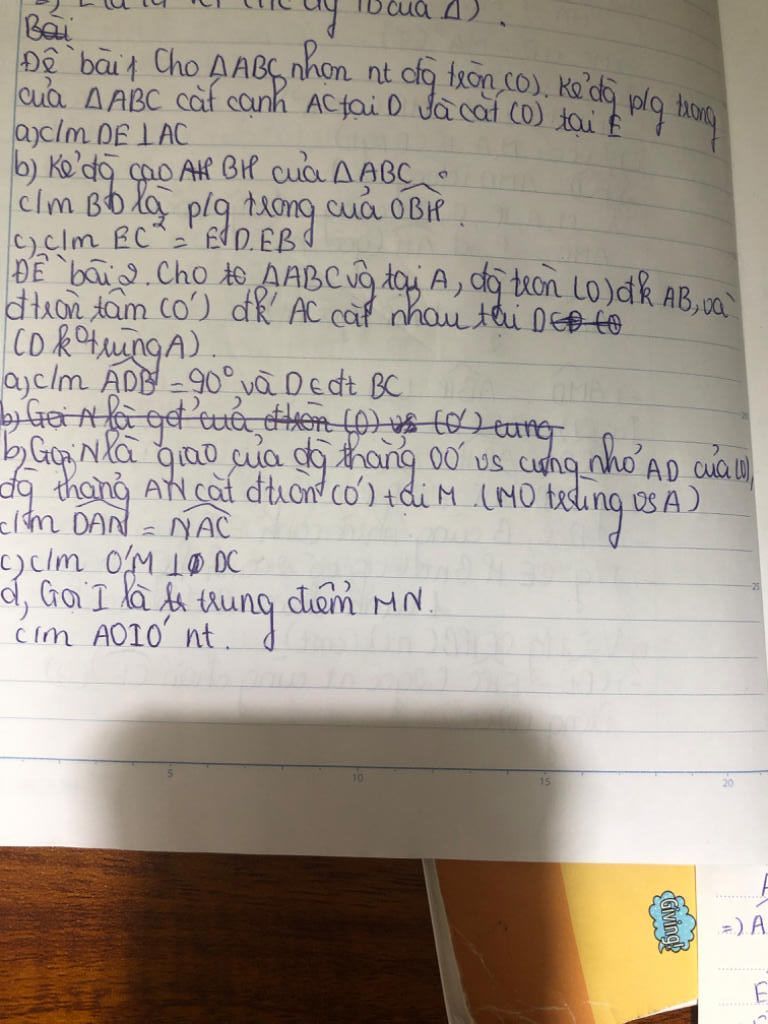 của Δ).
Bài
Đề bài 1 Cho ΔABC nhọn nt đg tròn (O). Kẻ đg p/g trong
của ΔABC cắt cạnh AC tại D và cắt (O) tại E
a) c/m DE ⊥ AC
b) Kẻ đg cao AH BH của ΔABC.
c/m BD là p/g trong của OBH.
c) c/m EC² = ED.EB
ĐỀ bài 2. Cho ΔABC vg tại A, đg tròn (O) đk AB, và
đtròn tâm (O') đk AC cắt nhau tại D
(D k° trùng A).
a) c/m ADB = 90° và D ∈ đt BC
b) Gọi N là gđ của đtròn (O) vs (O') cung
b) Gọi N là giao của đg thẳng OO' vs cung nhỏ AD của (O),
đg thẳng AN cắt đtròn (O') tại M. (MO trùng vs A)
c/m DAN = NAC
c) c/m O'M ⊥ DC
d, Gọi I là trung điểm MN.
c/m AOIO' nt.
5 10 15 20
25
Giving!
=) A
E